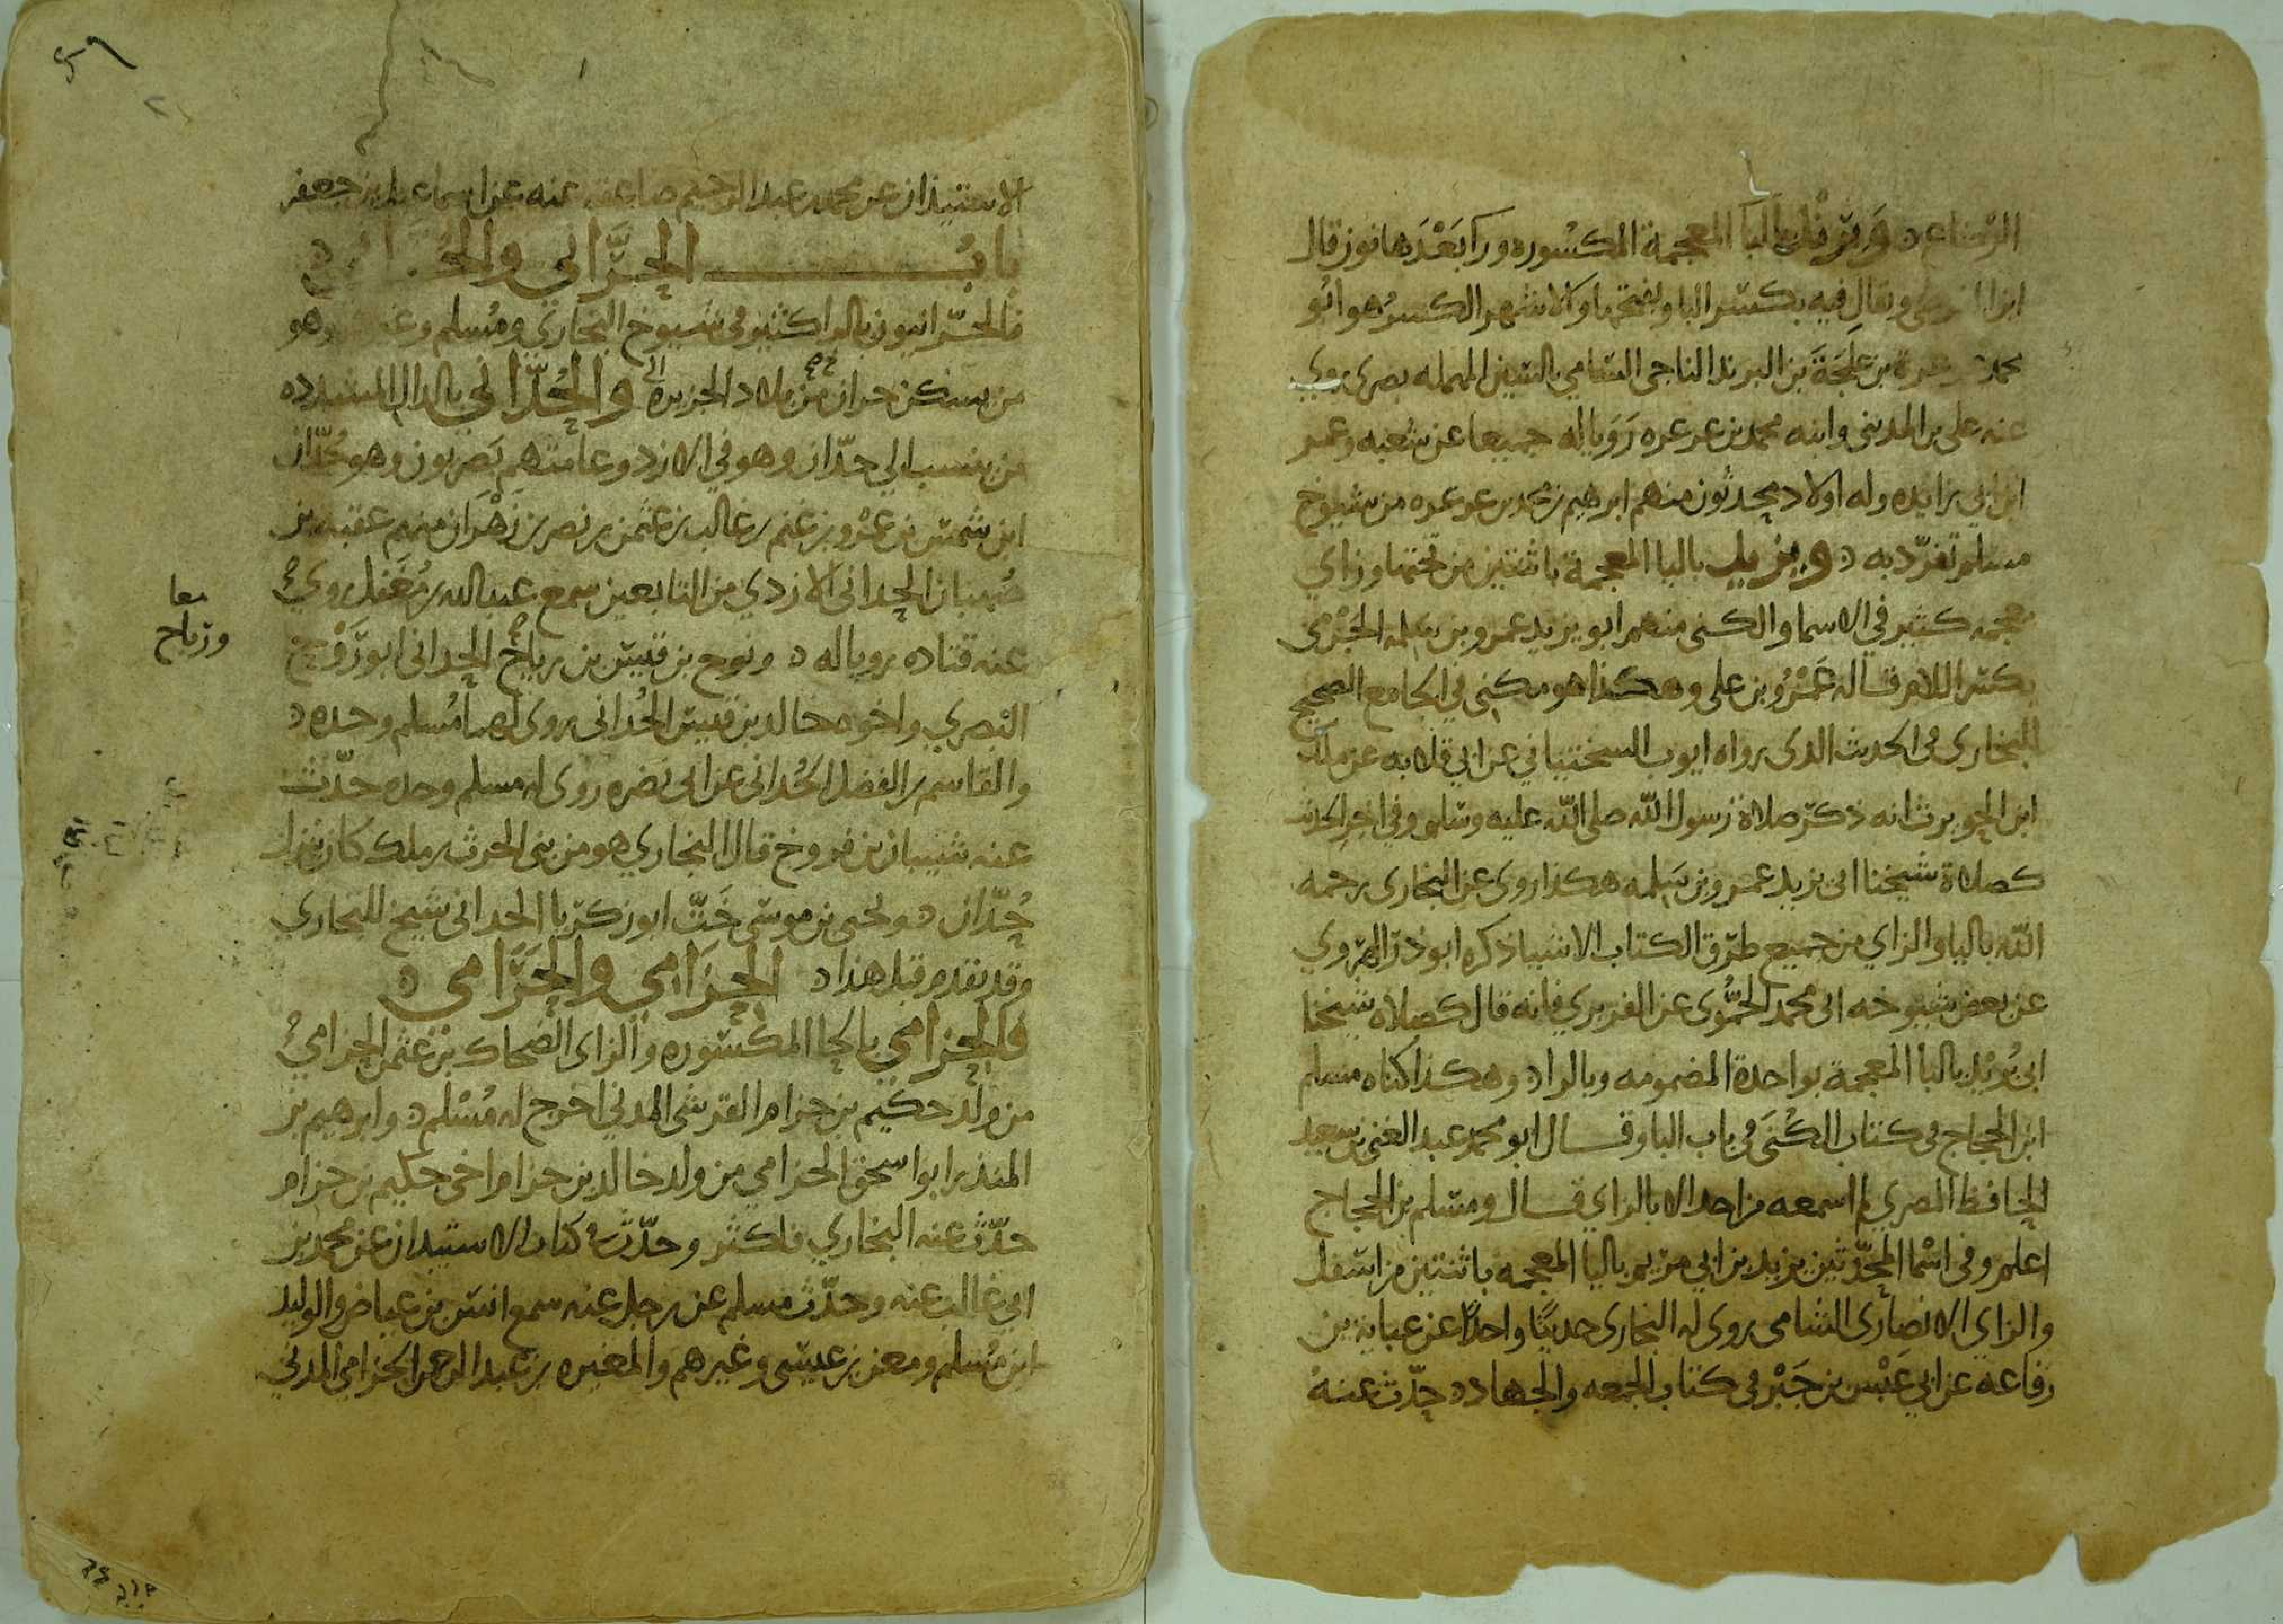 الرضاع ه وبرند بالبا المعجمة المكسوره ورا بعدها نون قال
ويقال فيه بكسر البا وبفتحها والاشهر الكسر هو ابو
محمد عرعرة بن البرند الناجي السامي بالسين المهمله بصري روي
عنه علي بن المديني وابنه محمد بن عرعره رويا له جميعا عن شعبه وعمر
ابن ابي زايده وله اولاد محدثون منهم ابرهيم بن محمد بن عرعره من شيوخ
مسلم تفرد به ه ويزيد باليا المعجمة باثنتين من تحتها وزاي
معجمه كثير في الاسما والكنى منهم ابو يزيد عمرو بن سلمه الجرمي
بكسر اللام قاله عمرو بن علي وهكذا هو مكنى في الجامع الصحيح
للبخاري في الحدث الدى رواه ايوب السختياني عن ابي قلابه عن ملك
ابن الحويرث انه ذكر صلاة رسول الله صلى الله عليه وسلم وفي اخر الحدث
كصلاة شيخنا ابي يزيد عمرو بن سلمه هكذا روي عن البخاري رحمه
الله باليا والزاي من جميع طرق الكتاب الا شيا ذكره ابو ذر الهروي
عن بعض شيوخه ابي محمد الحموي عن الفربري فانه قال كصلاة شيخنا
ابي بريد بالبا المعجمة بواحدة المضمومه وبالرا ه وهكذا كناه مسلم
ابن الحجاج في كتاب الكنى في باب البا وقال ابو محمد عبد الغني بن سعيد
الحافظ المصري لم اسمعه من احد الا بالزاي قال ومسلم بن الحجاج
اعلم وفي اسما المحدثين يزيد بن ابي مريم باليا المعجمة باثنتين من اسفل
والزاي الانصاري الشامي روى له البخاري حديثا واحدا عن عباية بن
رفاعه عن ابي عبس بن جبر في كتاب الجمعه والجهاد ه حدث عنه
الاستيذان عن محمد بن عبد الرحيم صاعقه عنه عن اسماعيل بن جعفر
باب الحراني والحداني ه
فالحرانيون بالرا كثير في شيوخ البخاري ومسلم وغيرهما وهو
من سكن حران من بلاد الجزيره والحداني بالدال المشدده
من ينسب الي حدان وهو في الازد وعامتهم بصريون وهو حدان
ابن شمس بن عمرو بن غنم بن غالب بن عثمن بن نصر بن زهران منهم عقبه بن
صهبان الحداني الازدي من التابعين سمع عبد الله بن مغفل روي
عنه قتاده رويا له ه ونوح بن قيس بن رباح الحداني ابو روح
معا
ورياح
البصري واخوه خالد بن قيس الحداني روى لهما مسلم وحده ه
والقاسم بن الفضل الحداني عن ابي نضره روى له مسلم وحده حدث
عنه شيبان بن فروخ قال البخاري هو من بني الحرث بن ملك كان ينزل
حدان ه ويحيى بن موسى خت ابو زكريا الحداني شيخ للبخاري
وقد تقدم قبل هذا ه الحزامي والحرامي ه
فالحزامي بالحا المكسوره والزاي الضحاك بن عثمن الحزامي
من ولد حكيم بن حزام القرشي المدني اخرج له مسلم ه وابرهيم بن
المنذر ابو اسحق الحزامي من ولد خالد بن حزام اخي حكيم بن حزام
حدث عنه البخاري فاكثر وحدث في كتاب الاستيذان عن محمد بن
ابي غالب عنه وحدث مسلم عن رجل عنه سمع انس بن عياض والوليد
ابن مسلم ومعن بن عيسى وغيرهم والمغيره بن عبد الرحمن الحزامي المدني